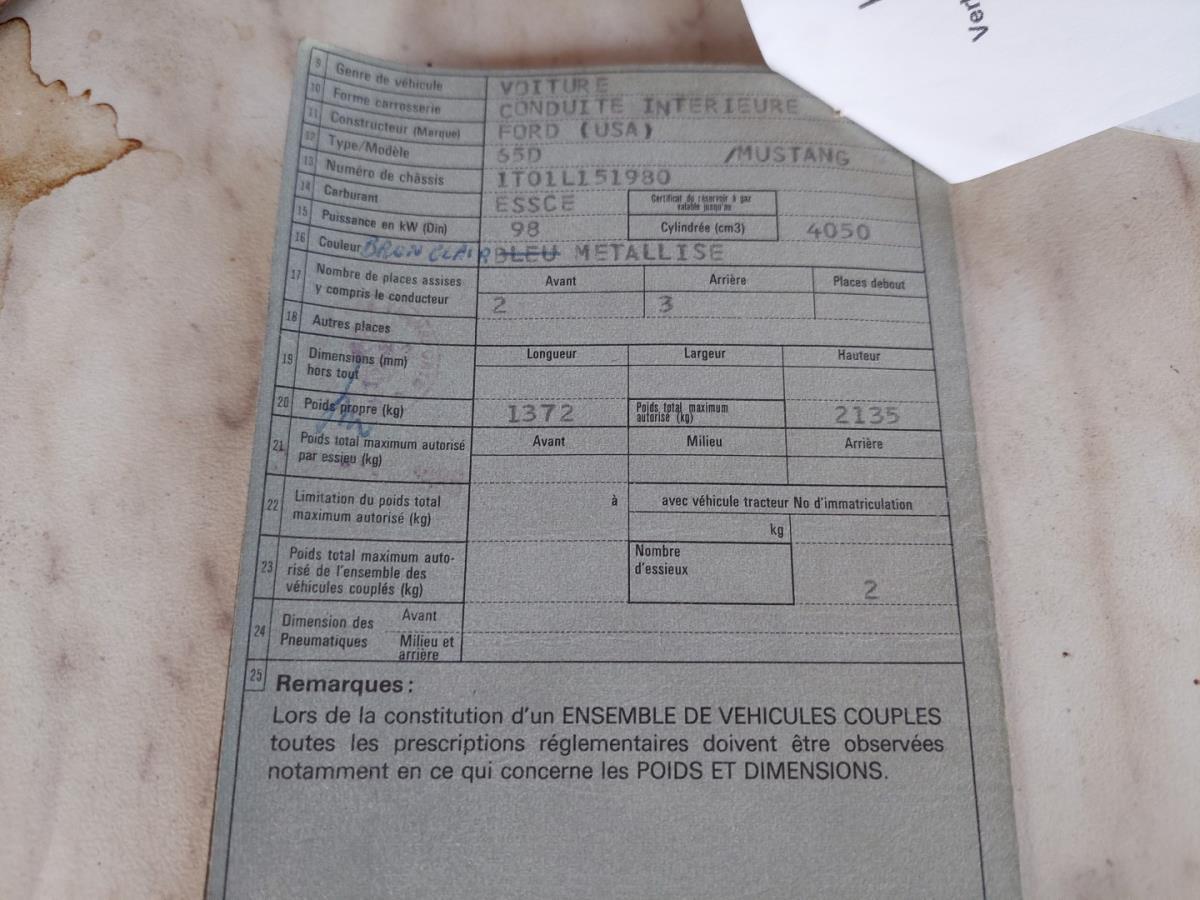 Ver
9 Genre de véhicule VOITURE
10 Forme carrosserie CONDUITE INTERIEURE
11 Constructeur (Marque) FORD (USA)
12 Type/Modèle 65D /MUSTANG
13 Numéro de châssis 1T01L151980
14 Carburant ESSCE Certificat du réservoir à gaz valable jusqu'au
15 Puissance en kW (Din) 98 Cylindrée (cm3) 4050
16 Couleur BRUN CLAIR BLEU METALLISE
17 Nombre de places assises y compris le conducteur Avant Arrière Places debout
2 3
18 Autres places
19 Dimensions (mm) hors tout Longueur Largeur Hauteur
20 Poids propre (kg) 1372 Poids total maximum autorisé (kg) 2135
21 Poids total maximum autorisé par essieu (kg) Avant Milieu Arrière
22 Limitation du poids total maximum autorisé (kg) à avec véhicule tracteur No d'immatriculation
kg
23 Poids total maximum auto-
risé de l'ensemble des
véhicules couplés (kg)
Nombre
d'essieux 2
24 Dimension des Pneumatiques Avant
Milieu et arrière
25 Remarques:
Lors de la constitution d'un ENSEMBLE DE VEHICULES COUPLES
toutes les prescriptions réglementaires doivent être observées
notamment en ce qui concerne les POIDS ET DIMENSIONS.